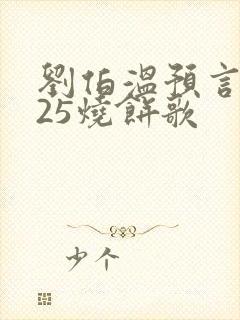 劉伯溫預言
25燒餅歌
少个